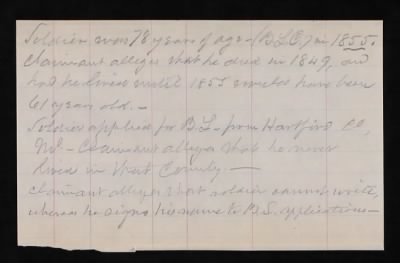 Soldier was 78 years of age - (B.L.C.) in 1855.
Claimant alleges that he died in 1849, and
had he lived until 1855 would have been
61 years old. -
Soldier applied for B.L. from Hartford Co,
Md - Claimant alleges that he never
lived in that County. —
Claimant alleges that soldier cannot write,
whereas he signs his name to B.L. applications —